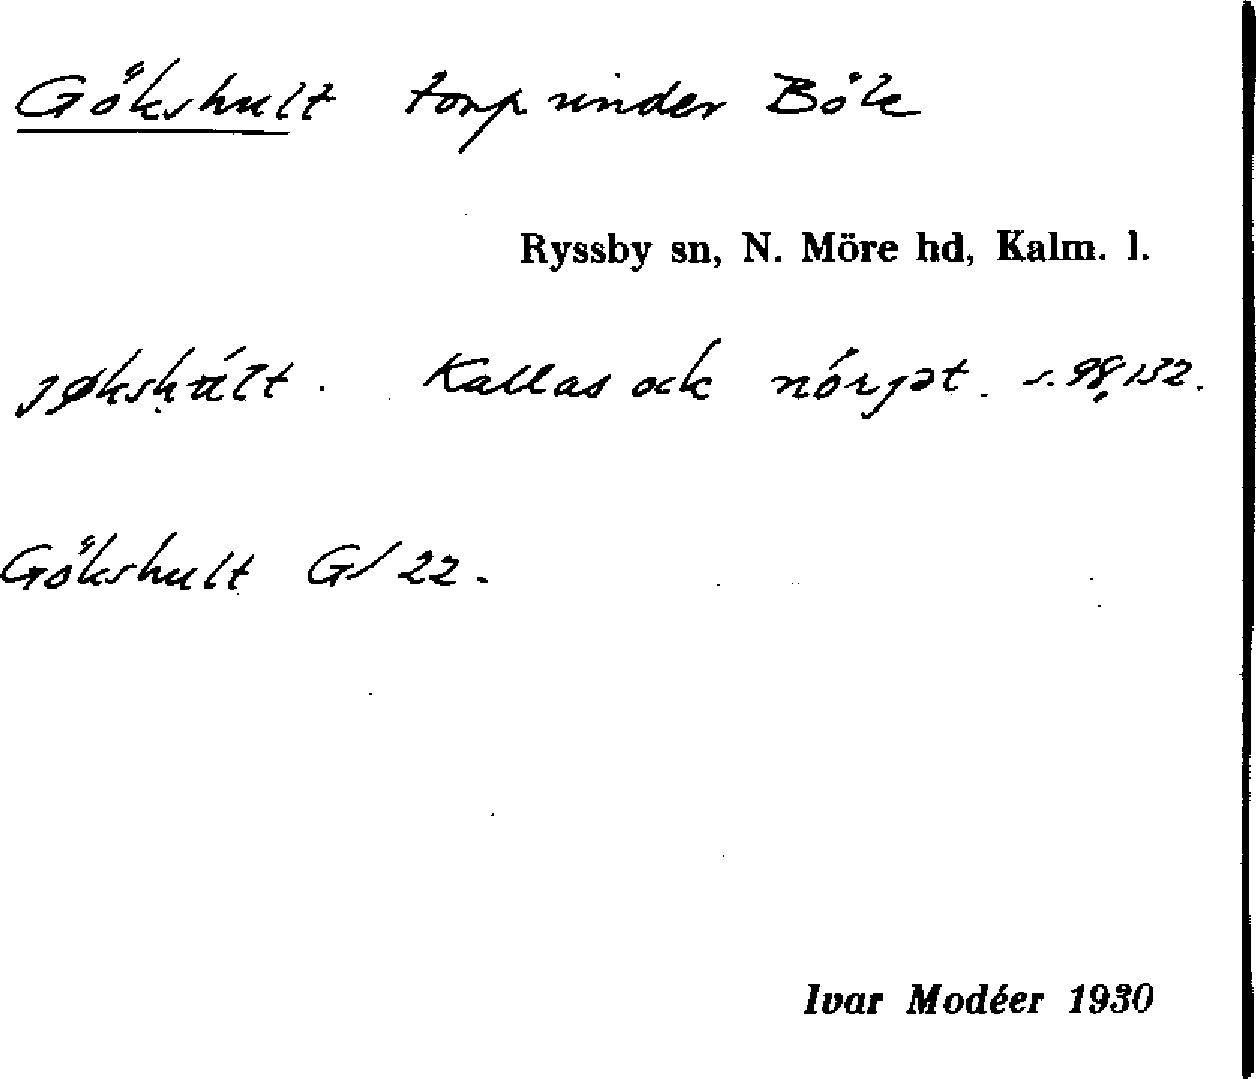 Gökshult torp under Bök
Ryssby sn, N. Möre hd, Kalm. l.
jøkshúlt. Kallas ock nórjət. s. 98, 132.
Gökshult Gs 22.
Ivar Modéer 1930